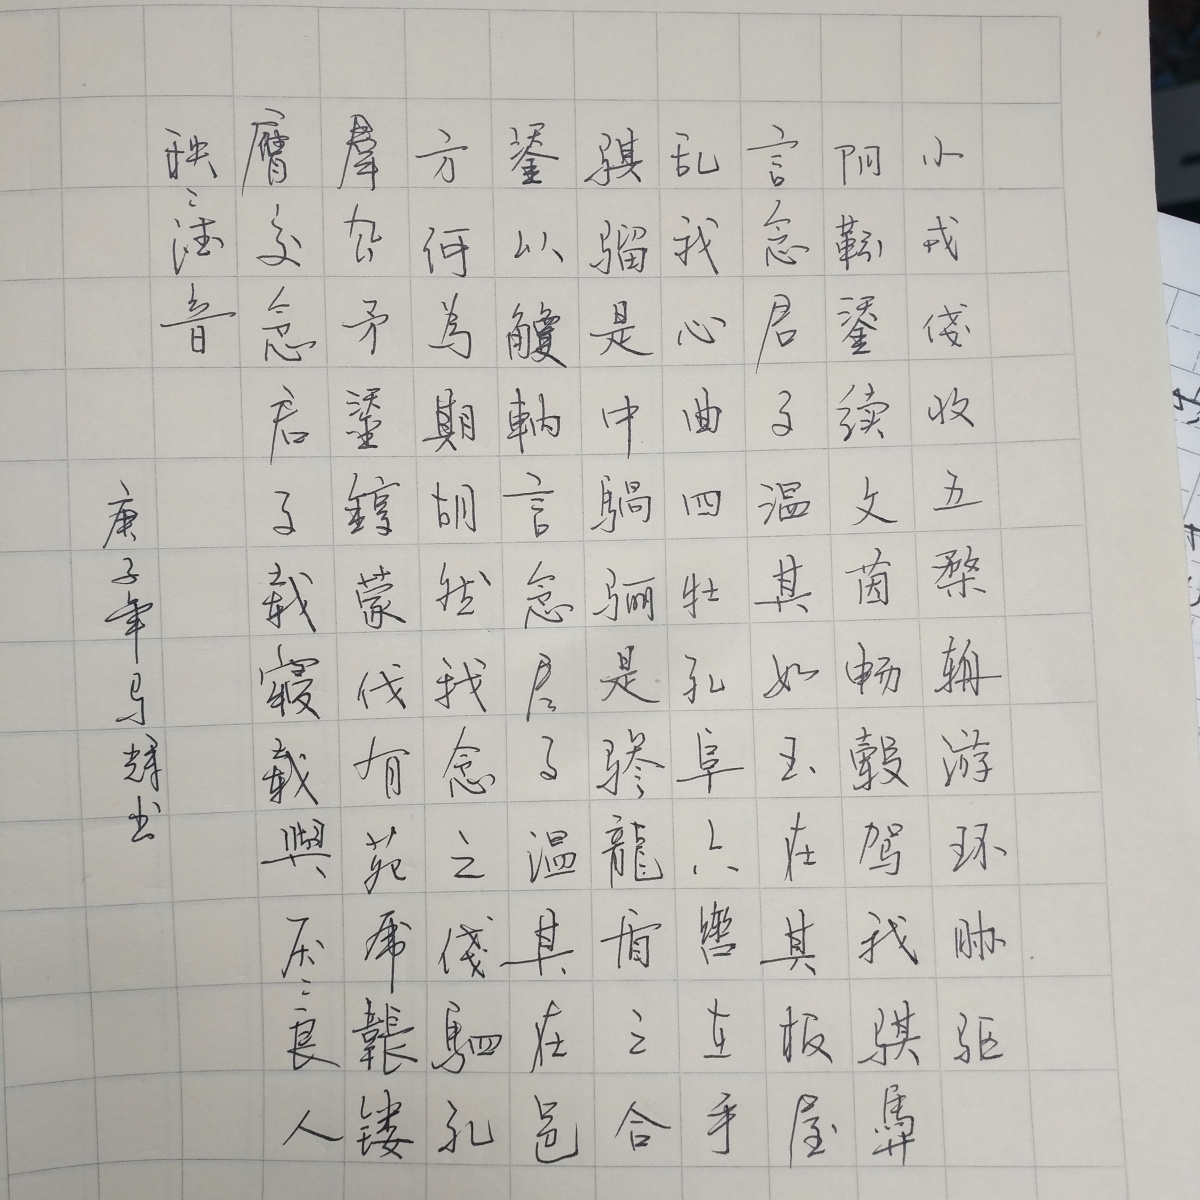 小戎俴收五楘輈游环胁驱
阴靷鋈续文茵畅轂驾我骐馵
言念君子温其如玉在其板屋
乱我心曲四牡孔阜六轡在手
骐骝是中騧骊是骖龍盾之合
鋈以觼軜言念君子温其在邑
方何為期胡然我念之俴駟孔
羣厹矛鋈錞蒙伐有苑虎韔镂
膺交念君子载寝载興厌〻良人
秩〻德音
庚子年马辉书